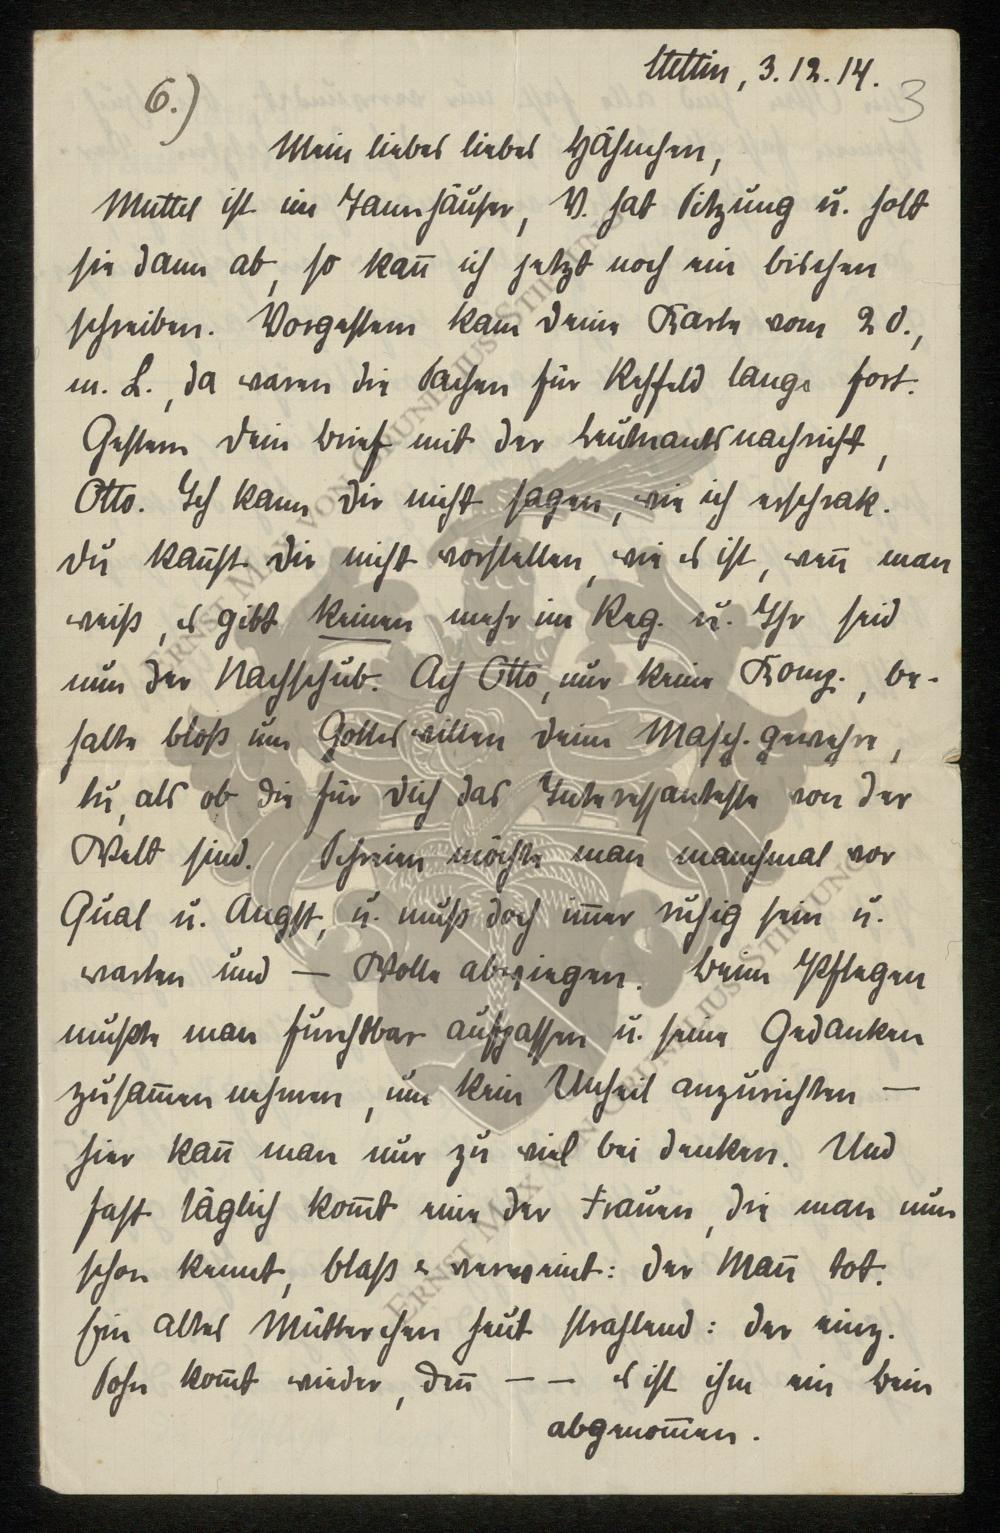 Stettin, 3.12.14.
6.)
3
Mein liebes liebes Hähnchen,
Muttel ist im Tannhäuser, V. hat Sitzung u. holt
sie dann ab, so kañ ich jetzt noch ein bischen
schreiben. Vorgestern kam Deine Karte vom 20.,
m. L., da waren die Sachen für Rehfeld lange fort.
Gestern Dein Brief mit der Leutnantsnachricht,
Otto. Ich kann Dir nicht sagen, wie ich erschrak.
Du kañst Dir nicht vorstellen, wie es ist, weñ man
weiß, es gibt keinen mehr im Reg. u. Ihr seid
nun der Nachschub. Ach Otto, nur keine Komp., be-
halte bloß um Gottes willen Deine Masch. gewehre,
tu, als ob die für Dich das Interessanteste von der
Welt sind. Schreien möchte man manchmal vor
Qual u. Angst, u. muß doch im̅er ruhig sein u.
warten und — Wolle abwiegen. Beim Pflegen
mußte man furchtbar aufpassen u. seine Gedanken
zusam̅en nehmen, um kein Unheil anzurichten —
hier kañ man nur zu viel bei denken. Und
fast täglich kom̅t eine der Frauen, die man nun
schon kennt, blaß u verweint: der Mañ tot.
Ein altes Mütterchen heut strahlend: der einz.
Sohn kom̅t wieder, deñ — — es ist ihm ein Bein
abgenom̅en.
ERNST MAX VON GRUNELIUS-STIFTUNG
ERNST MAX VON GRUNELIUS-STIFTUNG